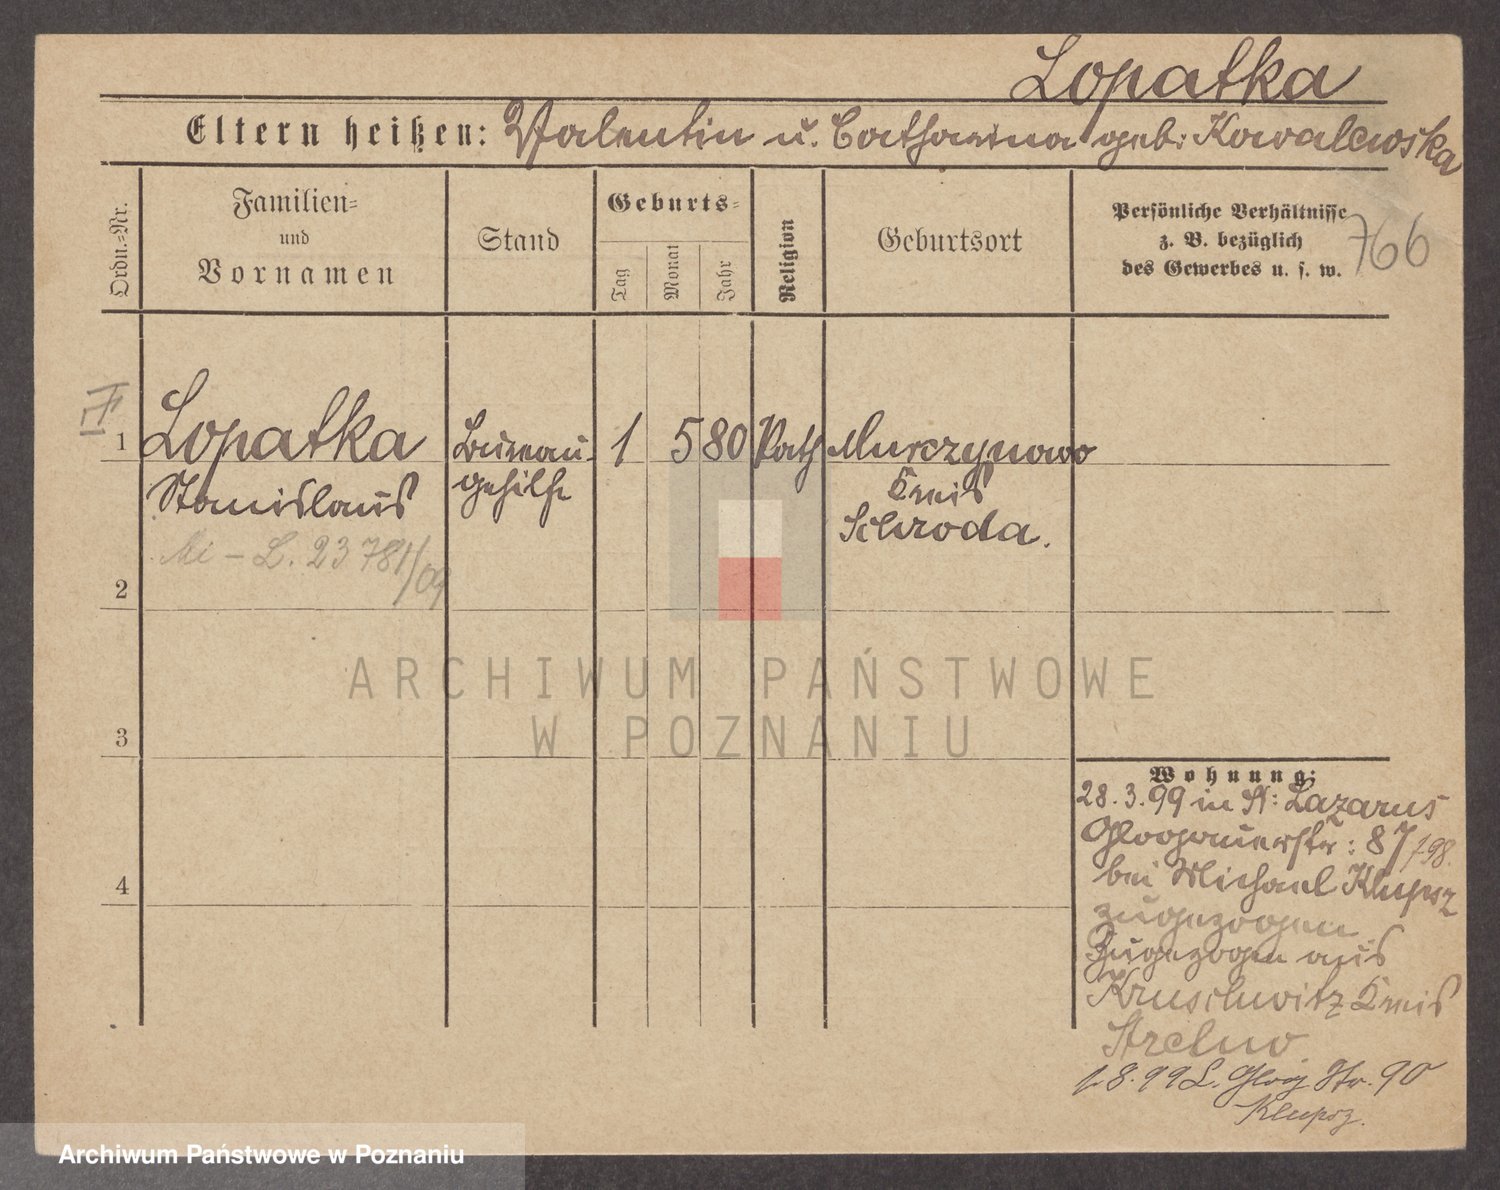 Lopatka
Eltern heißen: Valentin u. Catharina geb: Kowalewska
Ordn.=Nr.
Familien=
und
Vornamen
Stand
Geburts=
Tag
Monat
Jahr
Religion
Geburtsort
Persönliche Verhältnisse
z. B. bezüglich
des Gewerbes u. s. w.
766
1
Lopatka
Stanislaus
Bureau-
gehilfe
1 5 80 Kath
Murczynowo
Kreis
Schroda.
L. 23781/09
2
ARCHIWUM PAŃSTWOWE
W POZNANIU
3
4
Wohnung:
28.3.99 in St: Lazarus
Glogauerstr: 87
bei Michael Klupsz
zugezogen
Zugezogen aus
Kruschwitz Kreis
Strelno
1.8.99 L. Glog Str. 90
Klupsz.
Archiwum Państwowe w Poznaniu